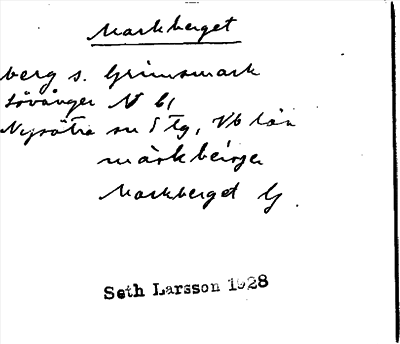 Markberget
berg s. Grimsmark
Lövånger N 61
Nysätra sn 5 tg, Vb län
màrkbérge
Markberget G.
Seth Larsson 1928